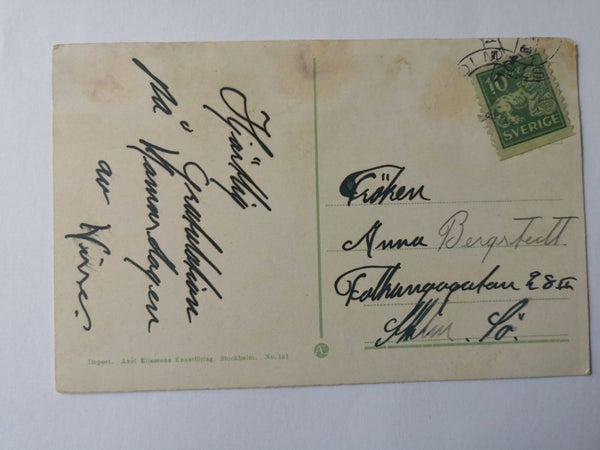 Hjärtlig
Gratulation
på Namnsdagen
av
Fröken
Anna Bergstedt
Folkungagatan
Sthlm. Sö.
10
SVERIGE
Import. Axel Eliassons Konstförlag. Stockholm. No. 131